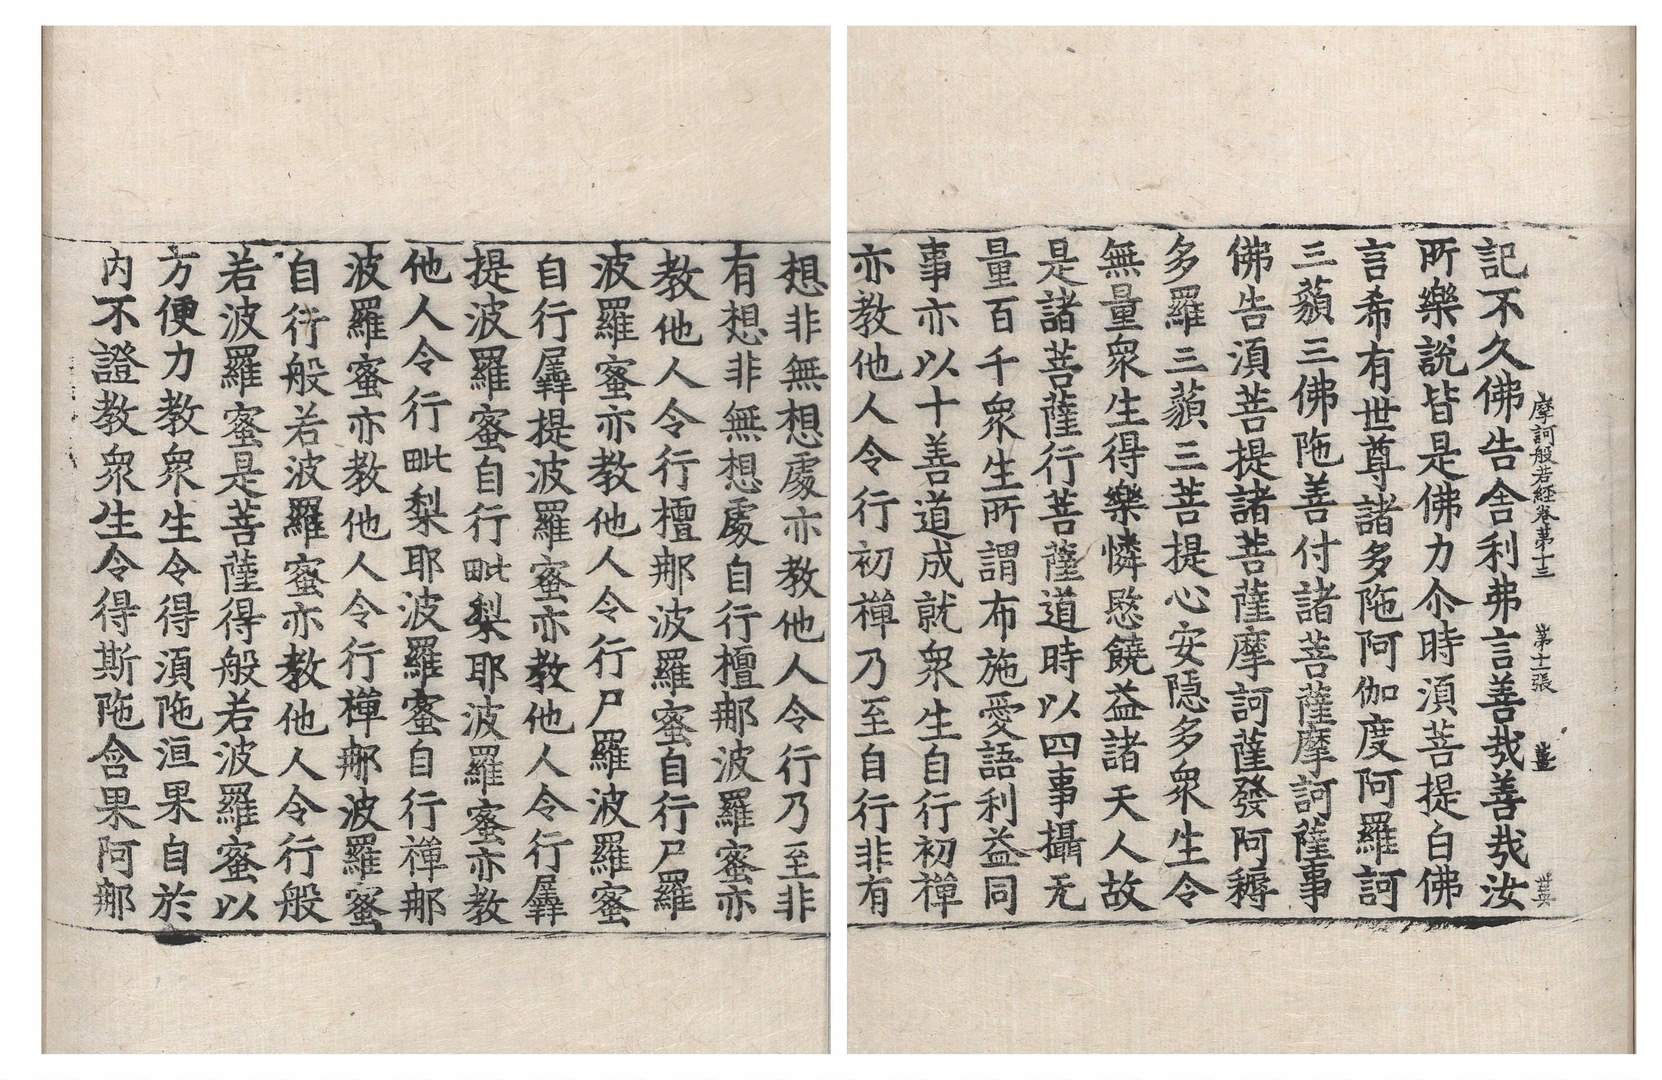 摩訶般若經卷第十三 第十張 薑
記不久佛告舍利弗言善哉善哉汝
所樂說皆是佛力尒時湏菩提白佛
言希有世尊諸多陁阿伽度阿羅訶
三藐三佛陁善付諸菩薩摩訶薩事
佛告湏菩提諸菩薩摩訶薩發阿耨
多羅三藐三菩提心安隱多衆生令
無量衆生得樂憐愍饒益諸天人故
是諸菩薩行菩薩道時以四事攝无
量百千衆生所謂布施愛語利益同
事亦以十善道成就衆生自行初禪
亦教他人令行初禪乃至自行非有
想非無想處亦教他人令行乃至非
有想非無想處自行檀那波羅蜜亦
教他人令行檀那波羅蜜自行尸羅
波羅蜜亦教他人令行尸羅波羅蜜
自行羼提波羅蜜亦教他人令行羼
提波羅蜜自行毗梨耶波羅蜜亦教
他人令行毗梨耶波羅蜜自行禪那
波羅蜜亦教他人令行禪那波羅蜜
自行般若波羅蜜亦教他人令行般
若波羅蜜是菩薩得般若波羅蜜以
方便力教衆生令得湏陁洹果自於
内不證教衆生令得斯陁含果阿那